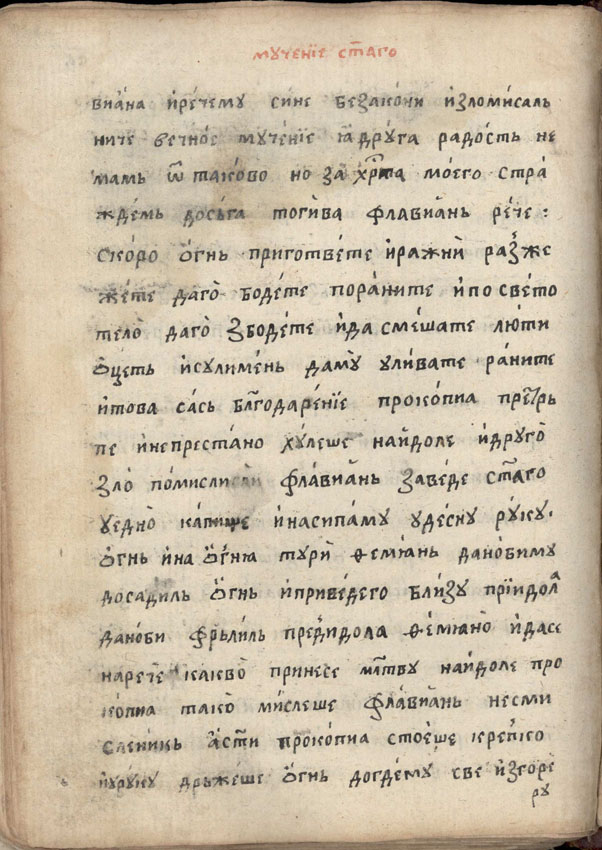 мꙋченїе ст҃аго
виꙗ́на и҆рече́мꙋ сине безако́ни и҆зломисаль
ниче ве́чное мꙋче́нїе ꙗ҆дрꙋ́га радость не
мамь ѿ таково но за хр҃та моего стра
ждемь досьга тоги́ва флавиꙗ́нь ре́че:
скоро ѻ҆гнь приготве́те и҆ражнѝ ра́зже
же́те даго̀ боде́те пора́ните и҆по свето
тело̀ даго̀ збоде́те и҆да сме́шате лю́ти
ѻ҆цеть и҆сꙋлиме́нь дамꙋ̀ ꙋли́вате ра́ните
и҆това сась бл҃года́ренїе проко́пиа прет҃рь
пе и҆непреста́но хꙋ́леше наи҆доле и҆дрꙋго̀
зло̀ поми́слиси флавиꙗ́нь за́веде ст҃аго
ꙋедно̀ ка́пище и҆насипа́мꙋ ꙋде́снꙋ рꙋ́кꙋ.
ѻ҆гнь и҆на ѻ҆гню тꙋрѝ ѳемїꙗ́нь дано́бимꙋ
доса́диль ѻ҆гнь и҆приве́дего бли́зꙋ прїи҆дола
даноби фрьли́ль преди҆дола ѳемїано̀ и҆дасе
наре́че какво̀ принесе мл҃твꙋ наи҆доле про
копиа тако̀ ми́слеше флавиꙗ́нь несми
слени́кь а҆ст҃и прокопиа стое́ше крепко
и҆рꙋкꙋ дрьже́ше ѻ҆гнь догде́мꙋ све и҆згорѐ
рꙋ